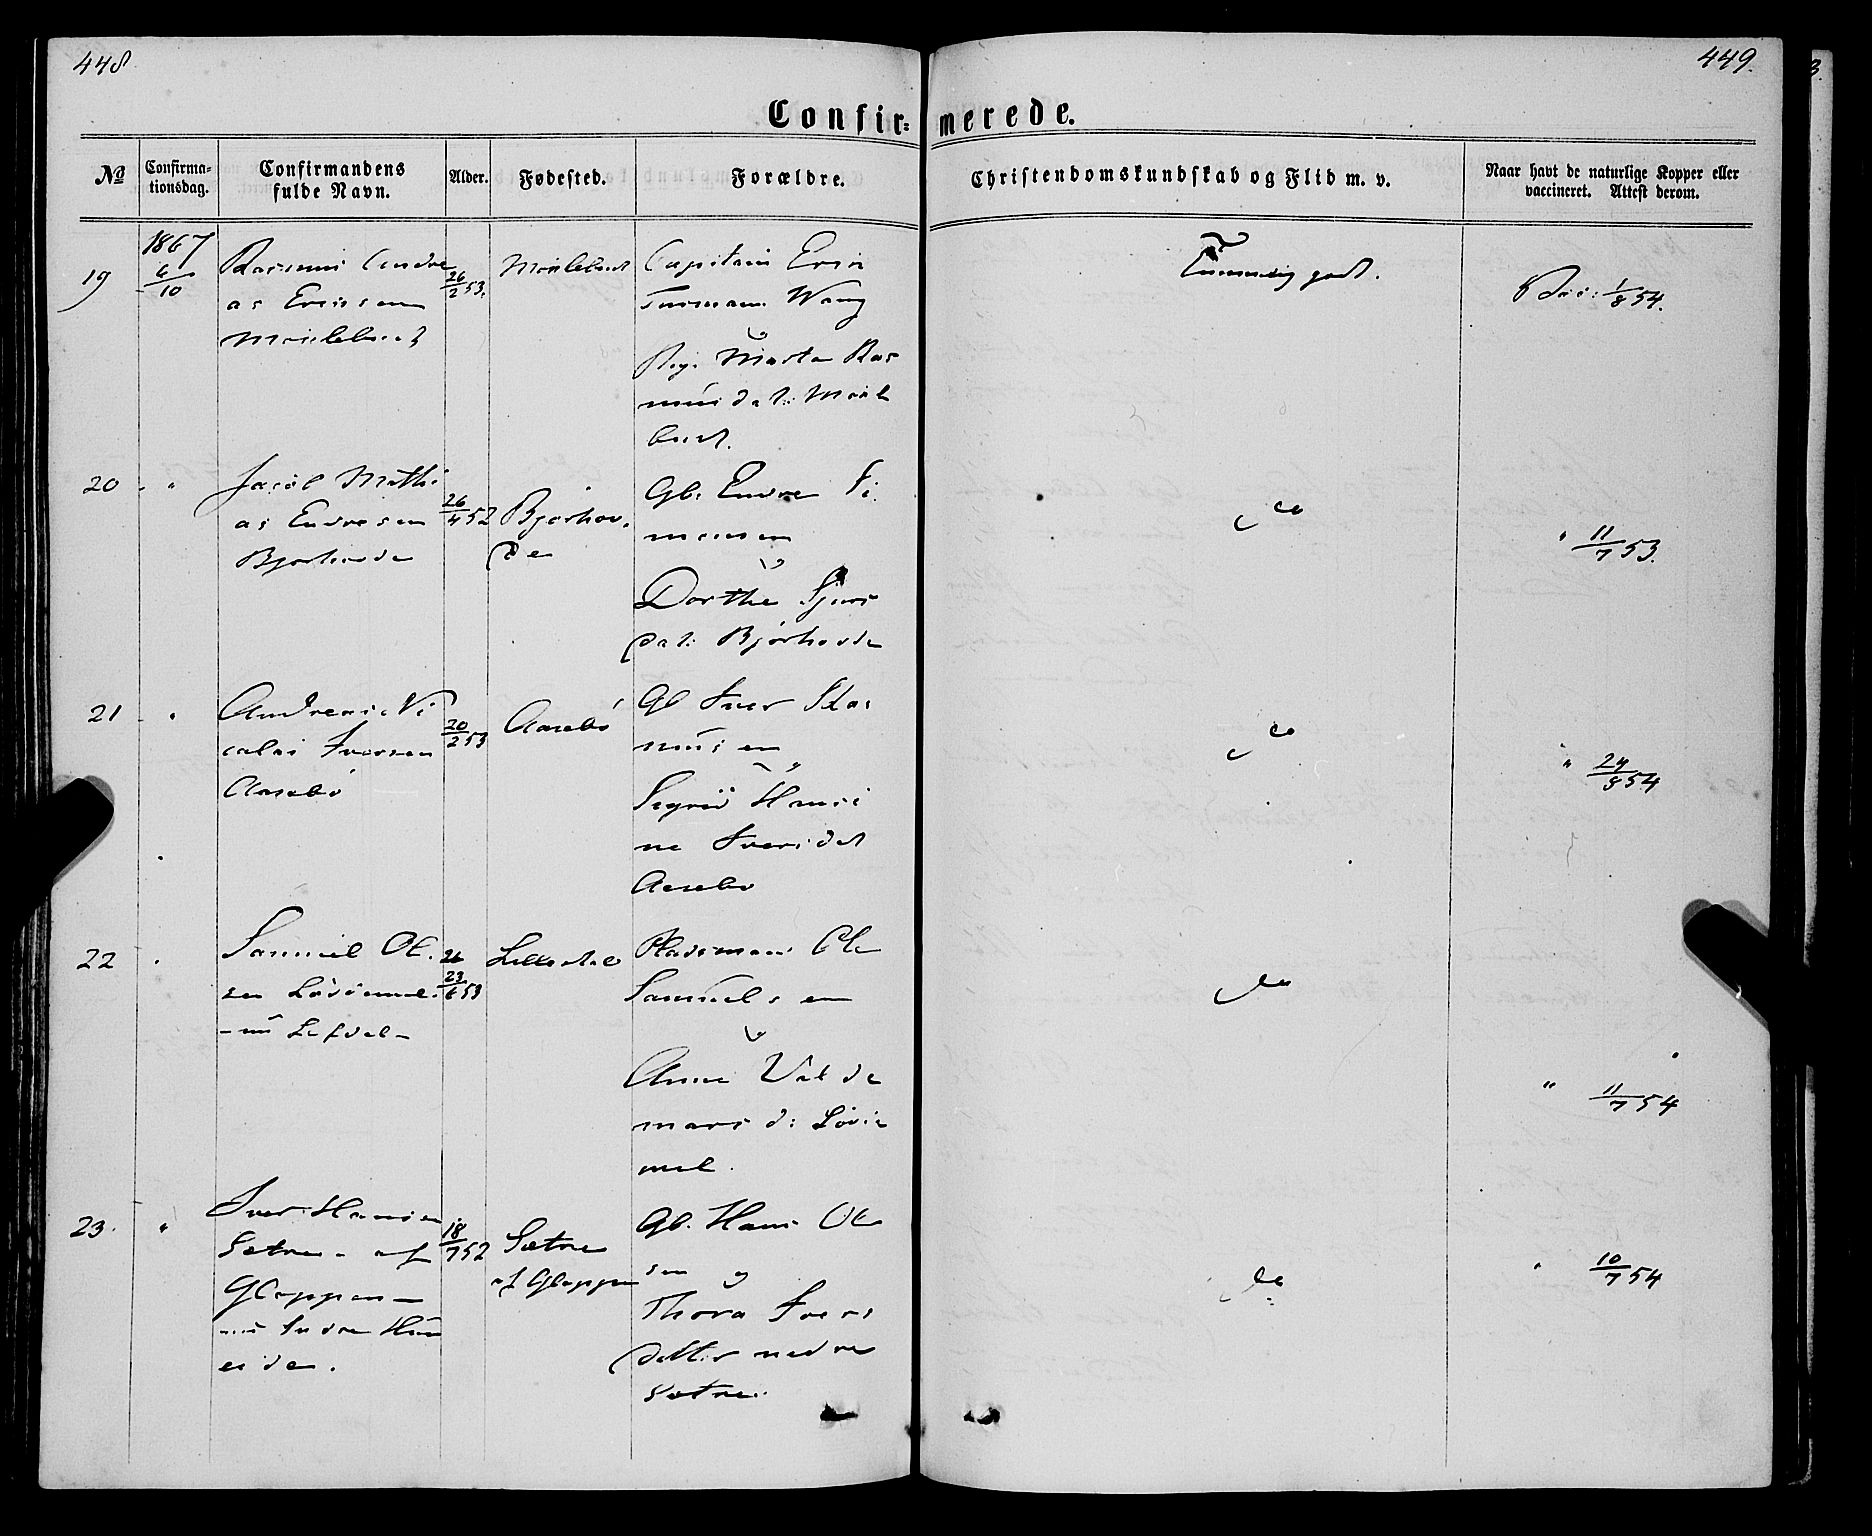 448
449.
Confir=
merede.
No
Confirma-
tionsdag.
Confirmandens
fulde Navn.
Alder.
Fødested.
Forældre.
Christendomskundskab og Flid m. v.
Naar havt de naturlige Kopper eller
vaccineret. Attest derom.
19
1867
6/10
Rasmus Andre
as
26/2 53.
Capitain
Wang
Marta Ras
Temmelig godt.
1/8 54.
20
"
Jacob Mathi
as Endresen
Bjørhovde
26/4 52
Bjørhov
de
Gb: Endre Si
monsen
Dorthe Sjurs
dat: Bjørhovde
do
" 11/7 53.
21
"
Andreas Ni
colai Iversen
Aasebø
20/2 53
Aasebø
Gb Iver Ras
musen
og
Sigrid Hansi
ne Iversdat
Aasebø
do
" 24/8 54
22
"
Samuel Ol
sen
23/6 53
Pladsmand Ole
Samuelsen
og
Anne Valde
mars d:
do
" 11/7 54
23.
"
Iver Hansen
Sætre - af
Gloppen -
Indre
eide.
18/7 52
Sætre
af Gloppen
Gb. Hans Ol
sen og
Thora Ivers
datter nedre
Sætre.
do
" 10/7 54